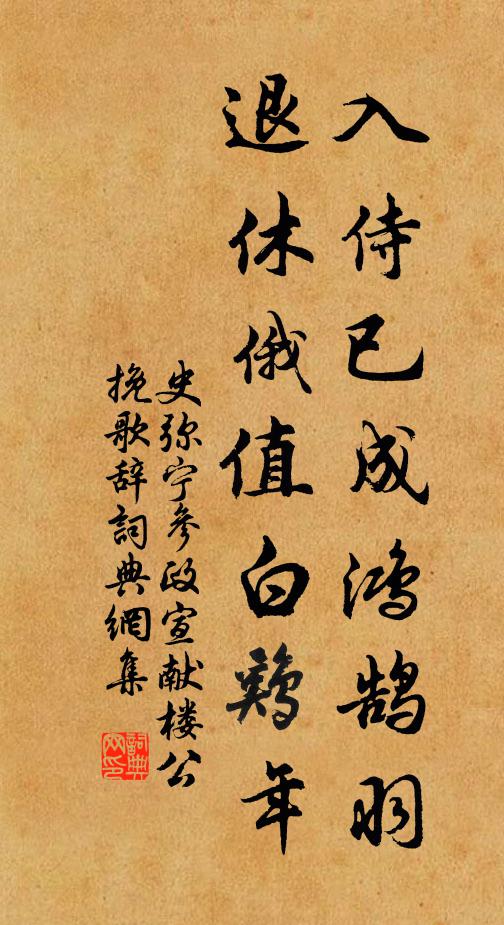 入侍已成鸿鹄羽
退休俄值白鷄年
史弥宁参政宣献楼公
挽歌辞詞典網集
詞典网印